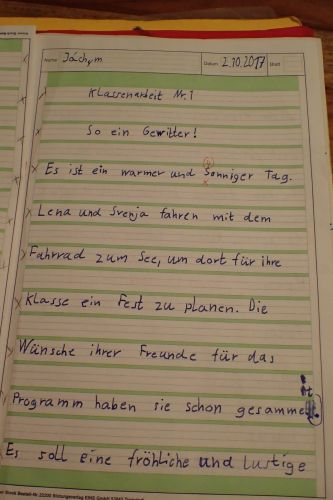 Name: Jáchym Datum 2.10.2017 Blatt
Klassenarbeit Nr. 1
So ein Gewitter!
Es ist ein warmer und Sonniger Tag.
Lena und Svenja fahren mit dem
Fahrrad zum See, um dort für ihre
Klasse ein Fest zu planen. Die
Wünsche ihrer Freunde für das
Programm haben sie schon gesammelt.
Es soll eine fröhliche und lustige